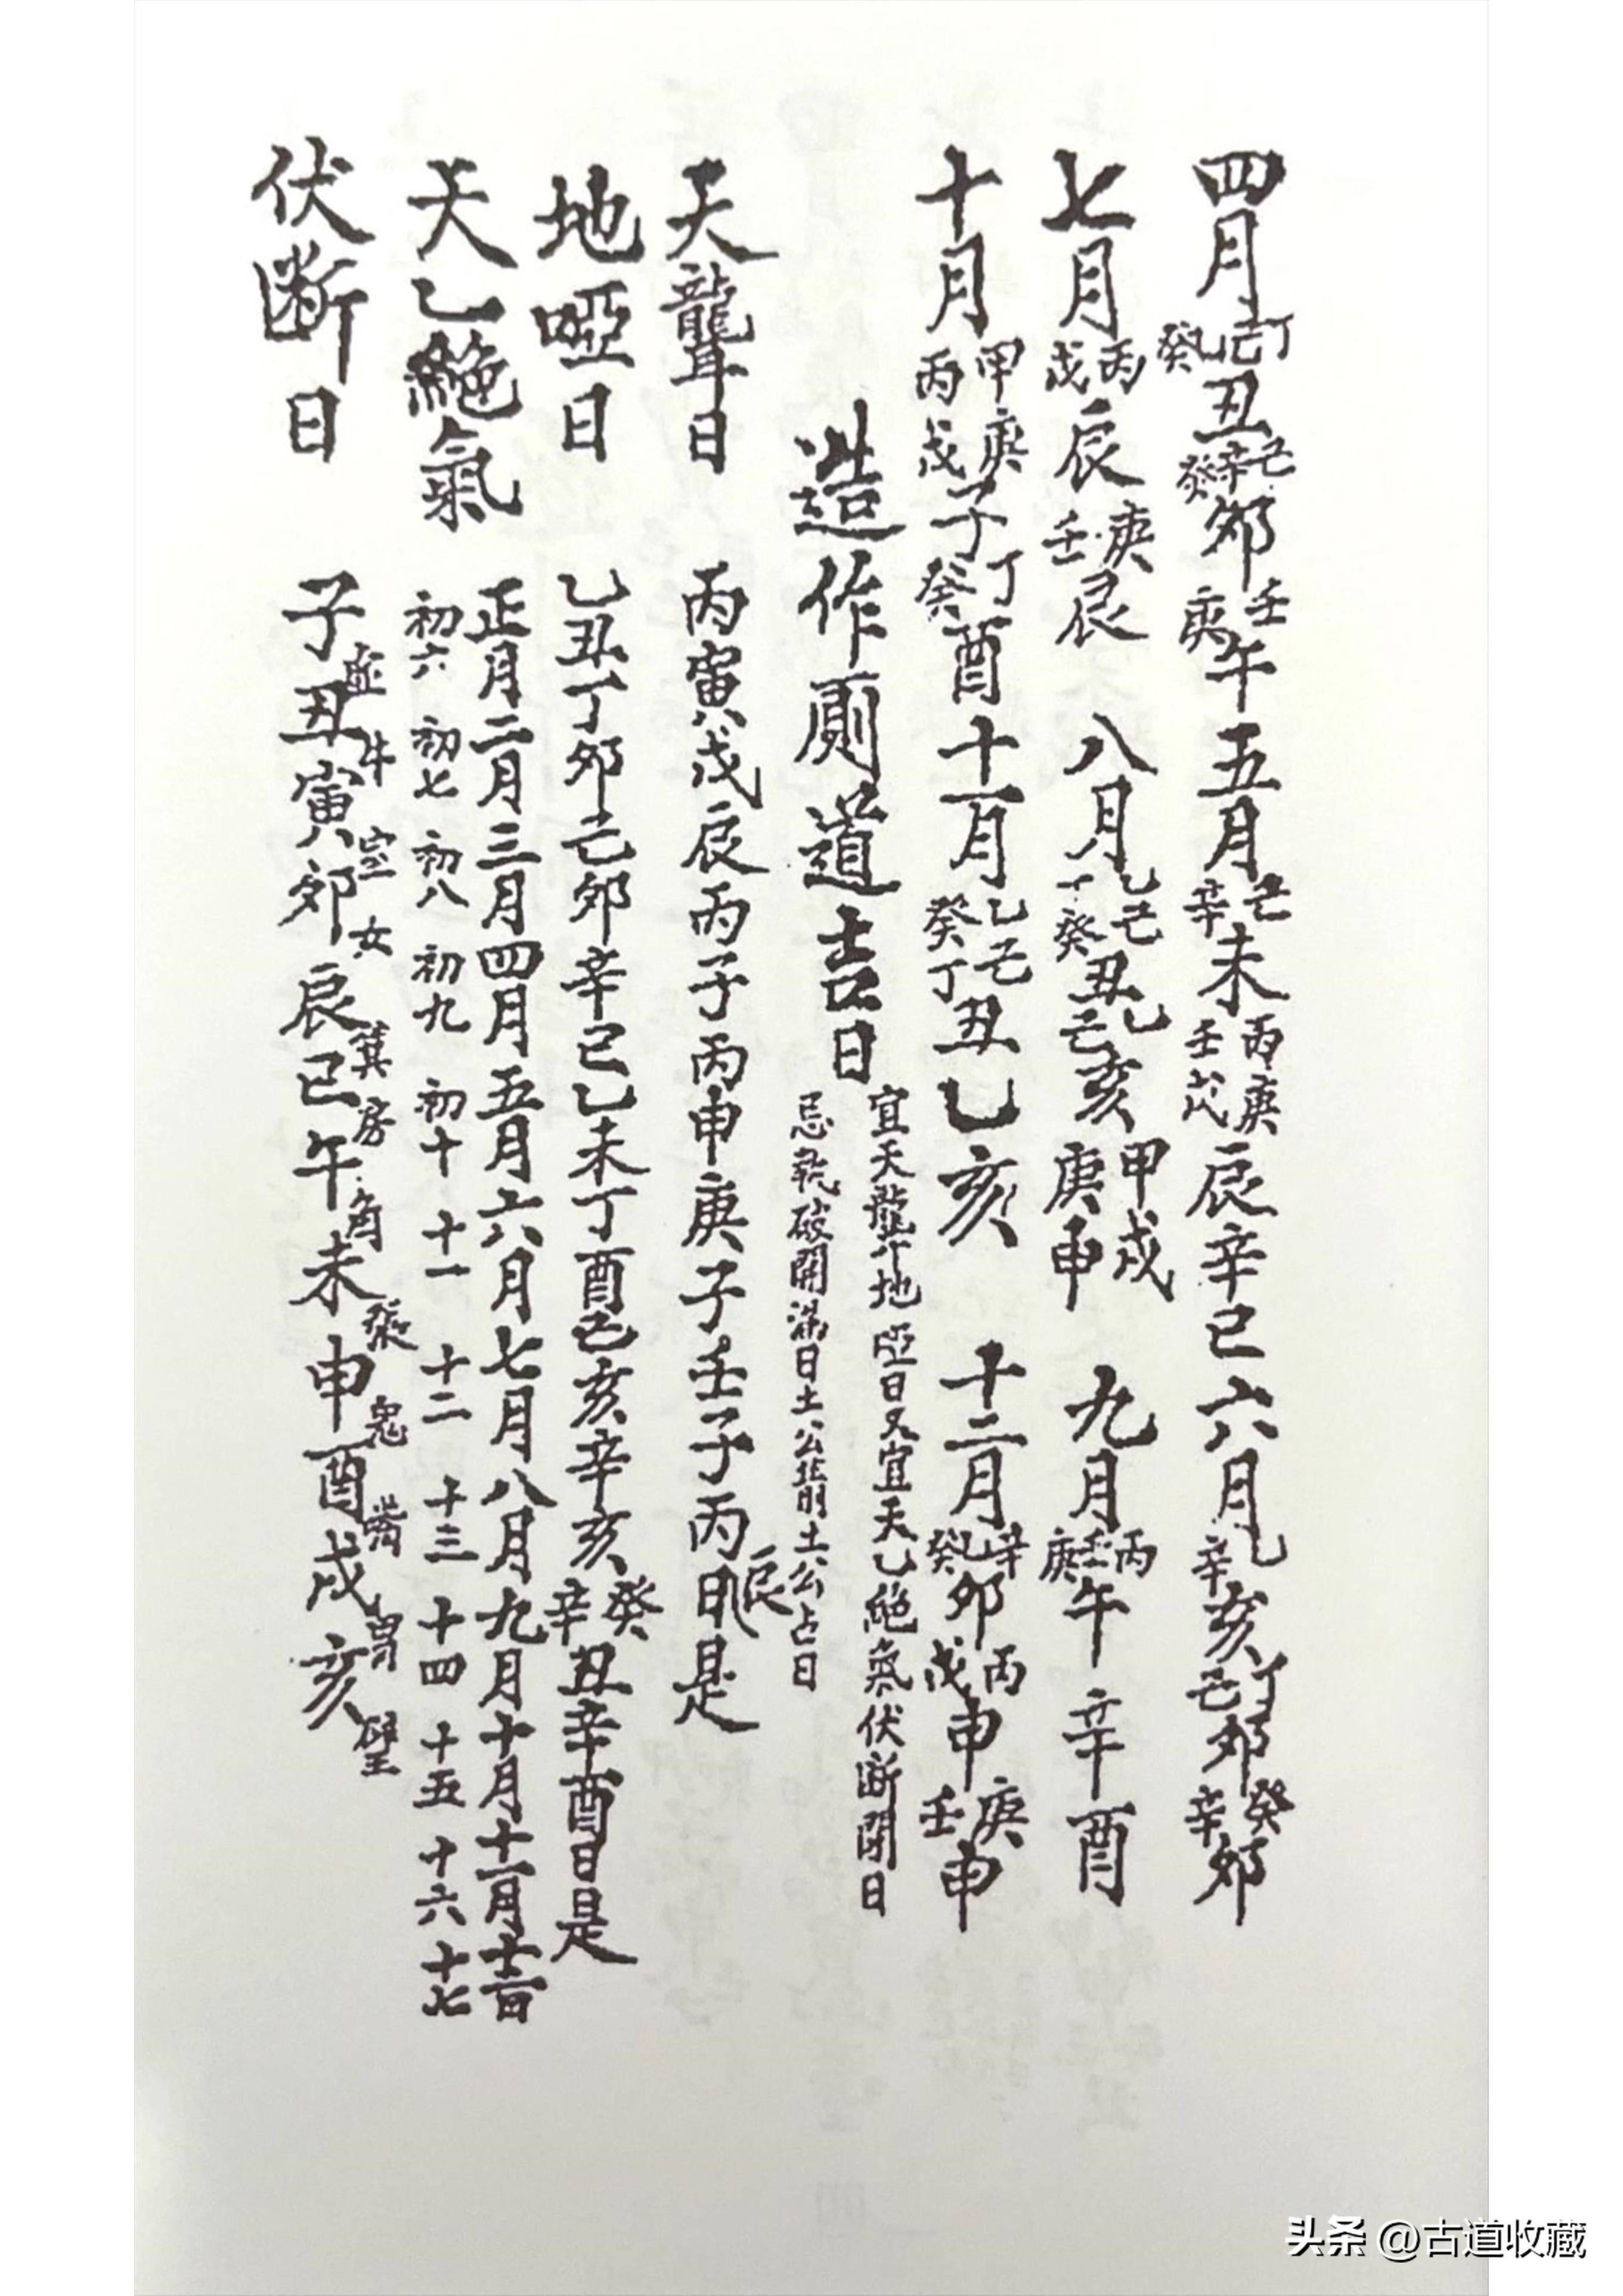 四月丁己乙癸丑己辛癸卯壬庚午 五月己辛未丙庚壬戊辰辛巳 六月乙辛亥丁己卯癸辛卯
七月丙戊辰庚壬辰 八月乙己丁癸丑乙己亥甲戌庚申 九月丙壬庚午辛酉
十月甲庚丙戊子丁癸酉 十一月乙己癸丁丑乙亥 十二月辛乙癸卯丙戊申庚壬申
造作厠道吉日
宜天聾地啞日又宜天乙絕氣伏断閉日
忌執破開滿日土公箭土公占日
天聾日 丙寅戊辰丙子丙申庚子壬子丙辰日是
地啞日 乙丑丁卯己卯辛巳乙未丁酉己亥辛亥癸辛丑辛酉日是
天乙絕氣 正月二月三月四月五月六月七月八月九月十月十一月十二月
初六 初七 初八 初九 初十 十一 十二 十三 十四 十五 十六 十七
伏断日 子虛丑牛寅室卯女辰箕巳房午角未張申鬼酉嘴戌胃亥壁
头条 @古道收藏